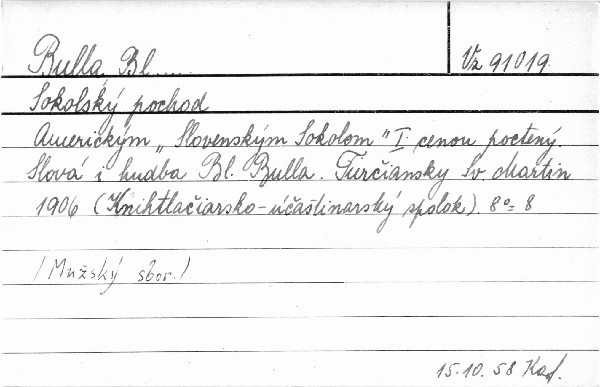 Bulla, Bl.....
Vz 91019.
Sokolský pochod
Americkým „Slovenským Sokolom" I. cenou poctený.
Slová i hudba Bl. Bulla. Turčiansky Sv. Martin
1906 (Knihtlačiarsko-účastinarský spolok). 8°= 8
/Mužský sbor./
15.10.58 Kad.